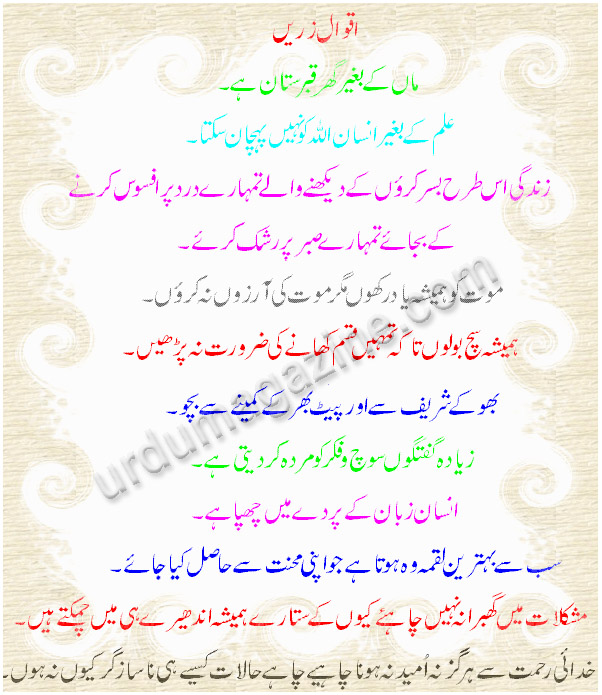 اقوال زریں
ماں کے بغیر گھر قبرستان ہے۔
علم کے بغیر انسان اللہ کو نہیں پہچان سکتا۔
زندگی اس طرح بسر کروٴں کے دیکھنے والے تمہارے درد پر افسوس کرنے
کے بجائے تمہارے صبر پر رشک کرئے۔
موت کو ہمیشہ یاد رکھوں مگر موت کی آرزوں نہ کروٴں۔
ہمیشہ سچ بولوں تاکہ تمھیں قسم کھانے کی ضرورت نہ پڑھیں۔
بھوکے شریف سے اور پیٹ بھر کے کمینے سے بچو۔
زیادہ گفتگوں سوچ و فکر کو مردہ کر دیتی ہے۔
انسان زبان کے پردے میں چھپا ہے۔
سب سے بہترین لقمہ وہ ہوتا ہے جو اپنی محنت سے حاصل کیا جائے۔
مشکلات میں گھبرانہ نہیں چاہئے کیوں کے ستارے ہمیشہ اندھیرے ہی میں چمکتے ہیں۔
خدائی رحمت سے ہرگز نہ اُمید نہ ہونا چاہیے چاہے حالات کیسے ہی ناسازگر کیوں نہ ہوں۔
urdumagazine.com